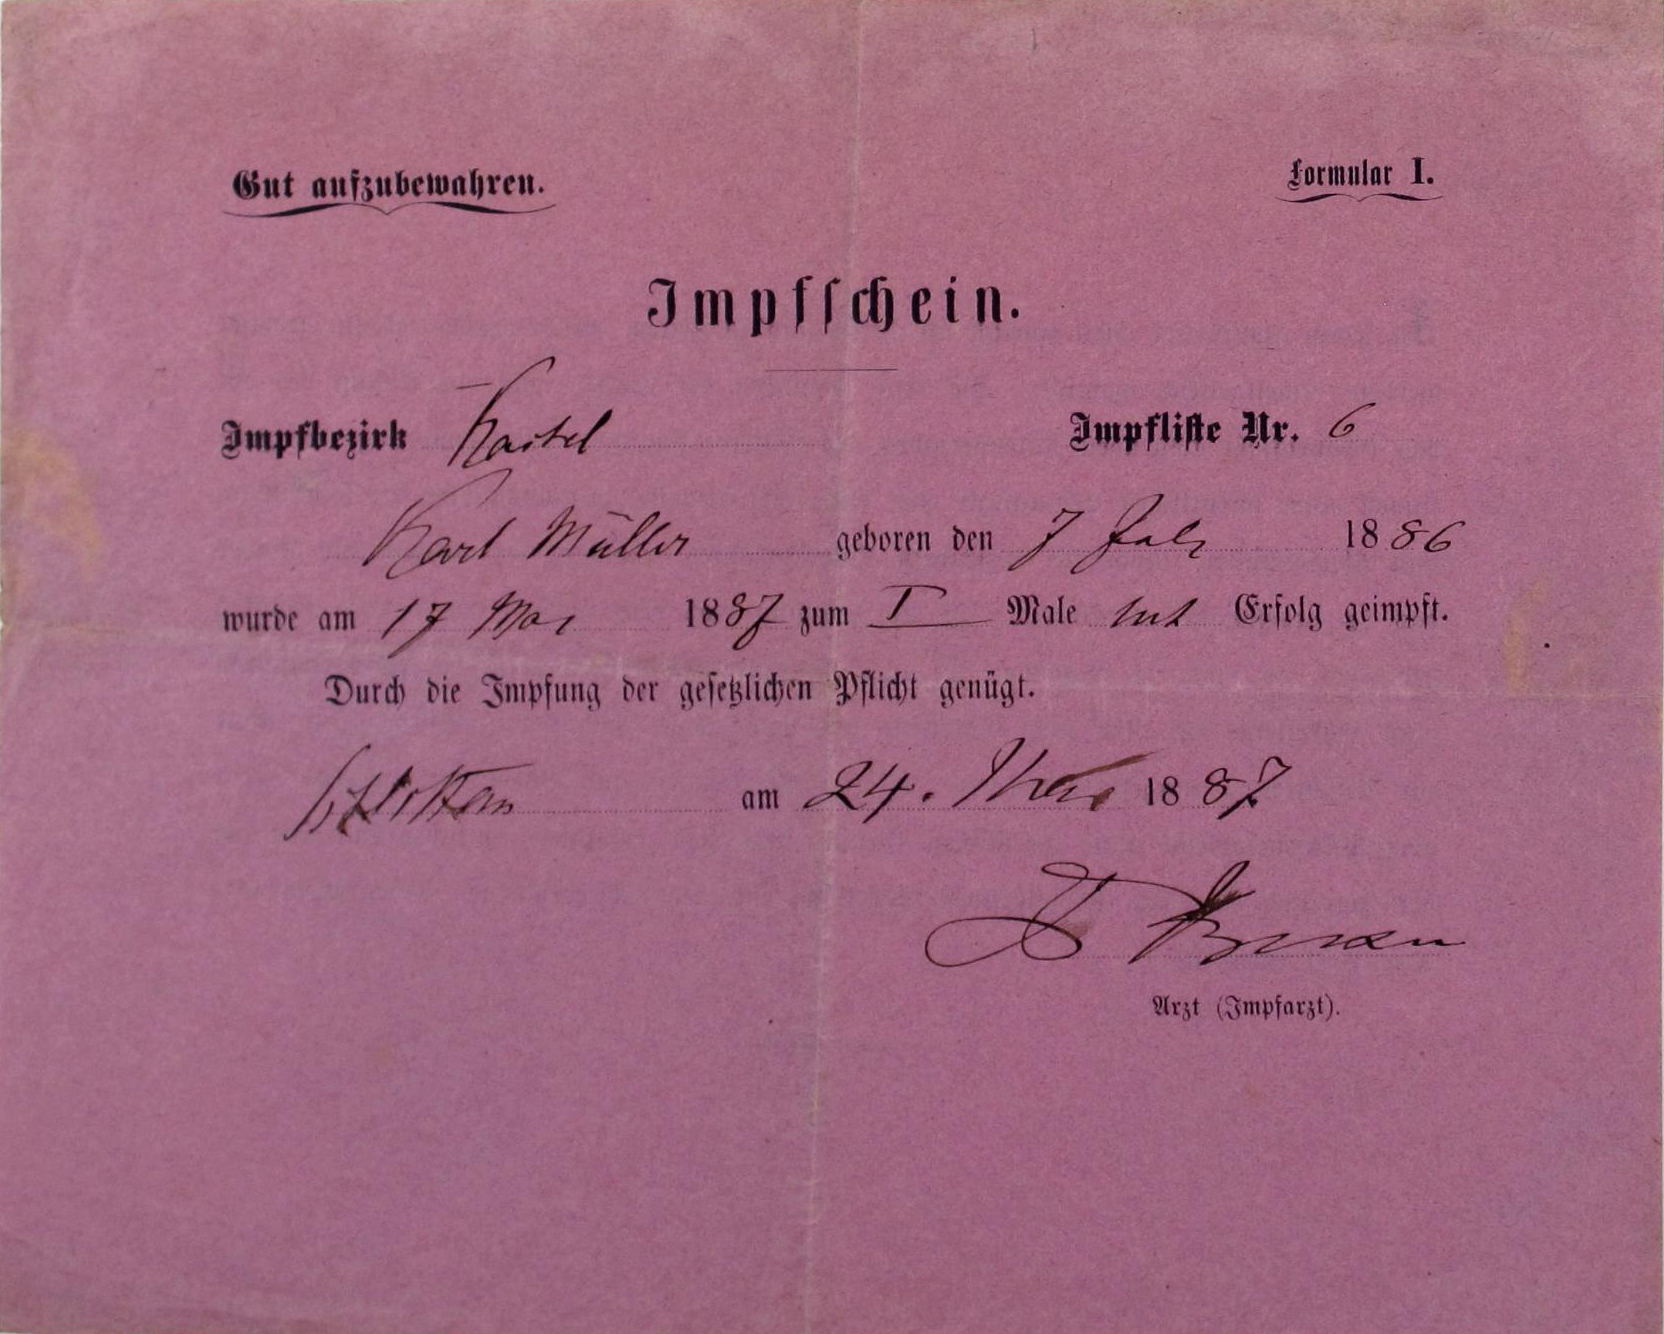 Gut aufzubewahren.
Formular I.
Impfschein.
Impfbezirk Kastel Impfliste Nr. 6
Karl Müller geboren den 7 July 1886
wurde am 17 Mai 1887 zum I Male mit Erfolg geimpft.
Durch die Impfung der gesetzlichen Pflicht genügt.
am 24. Mai 1887
Arzt (Impfarzt).